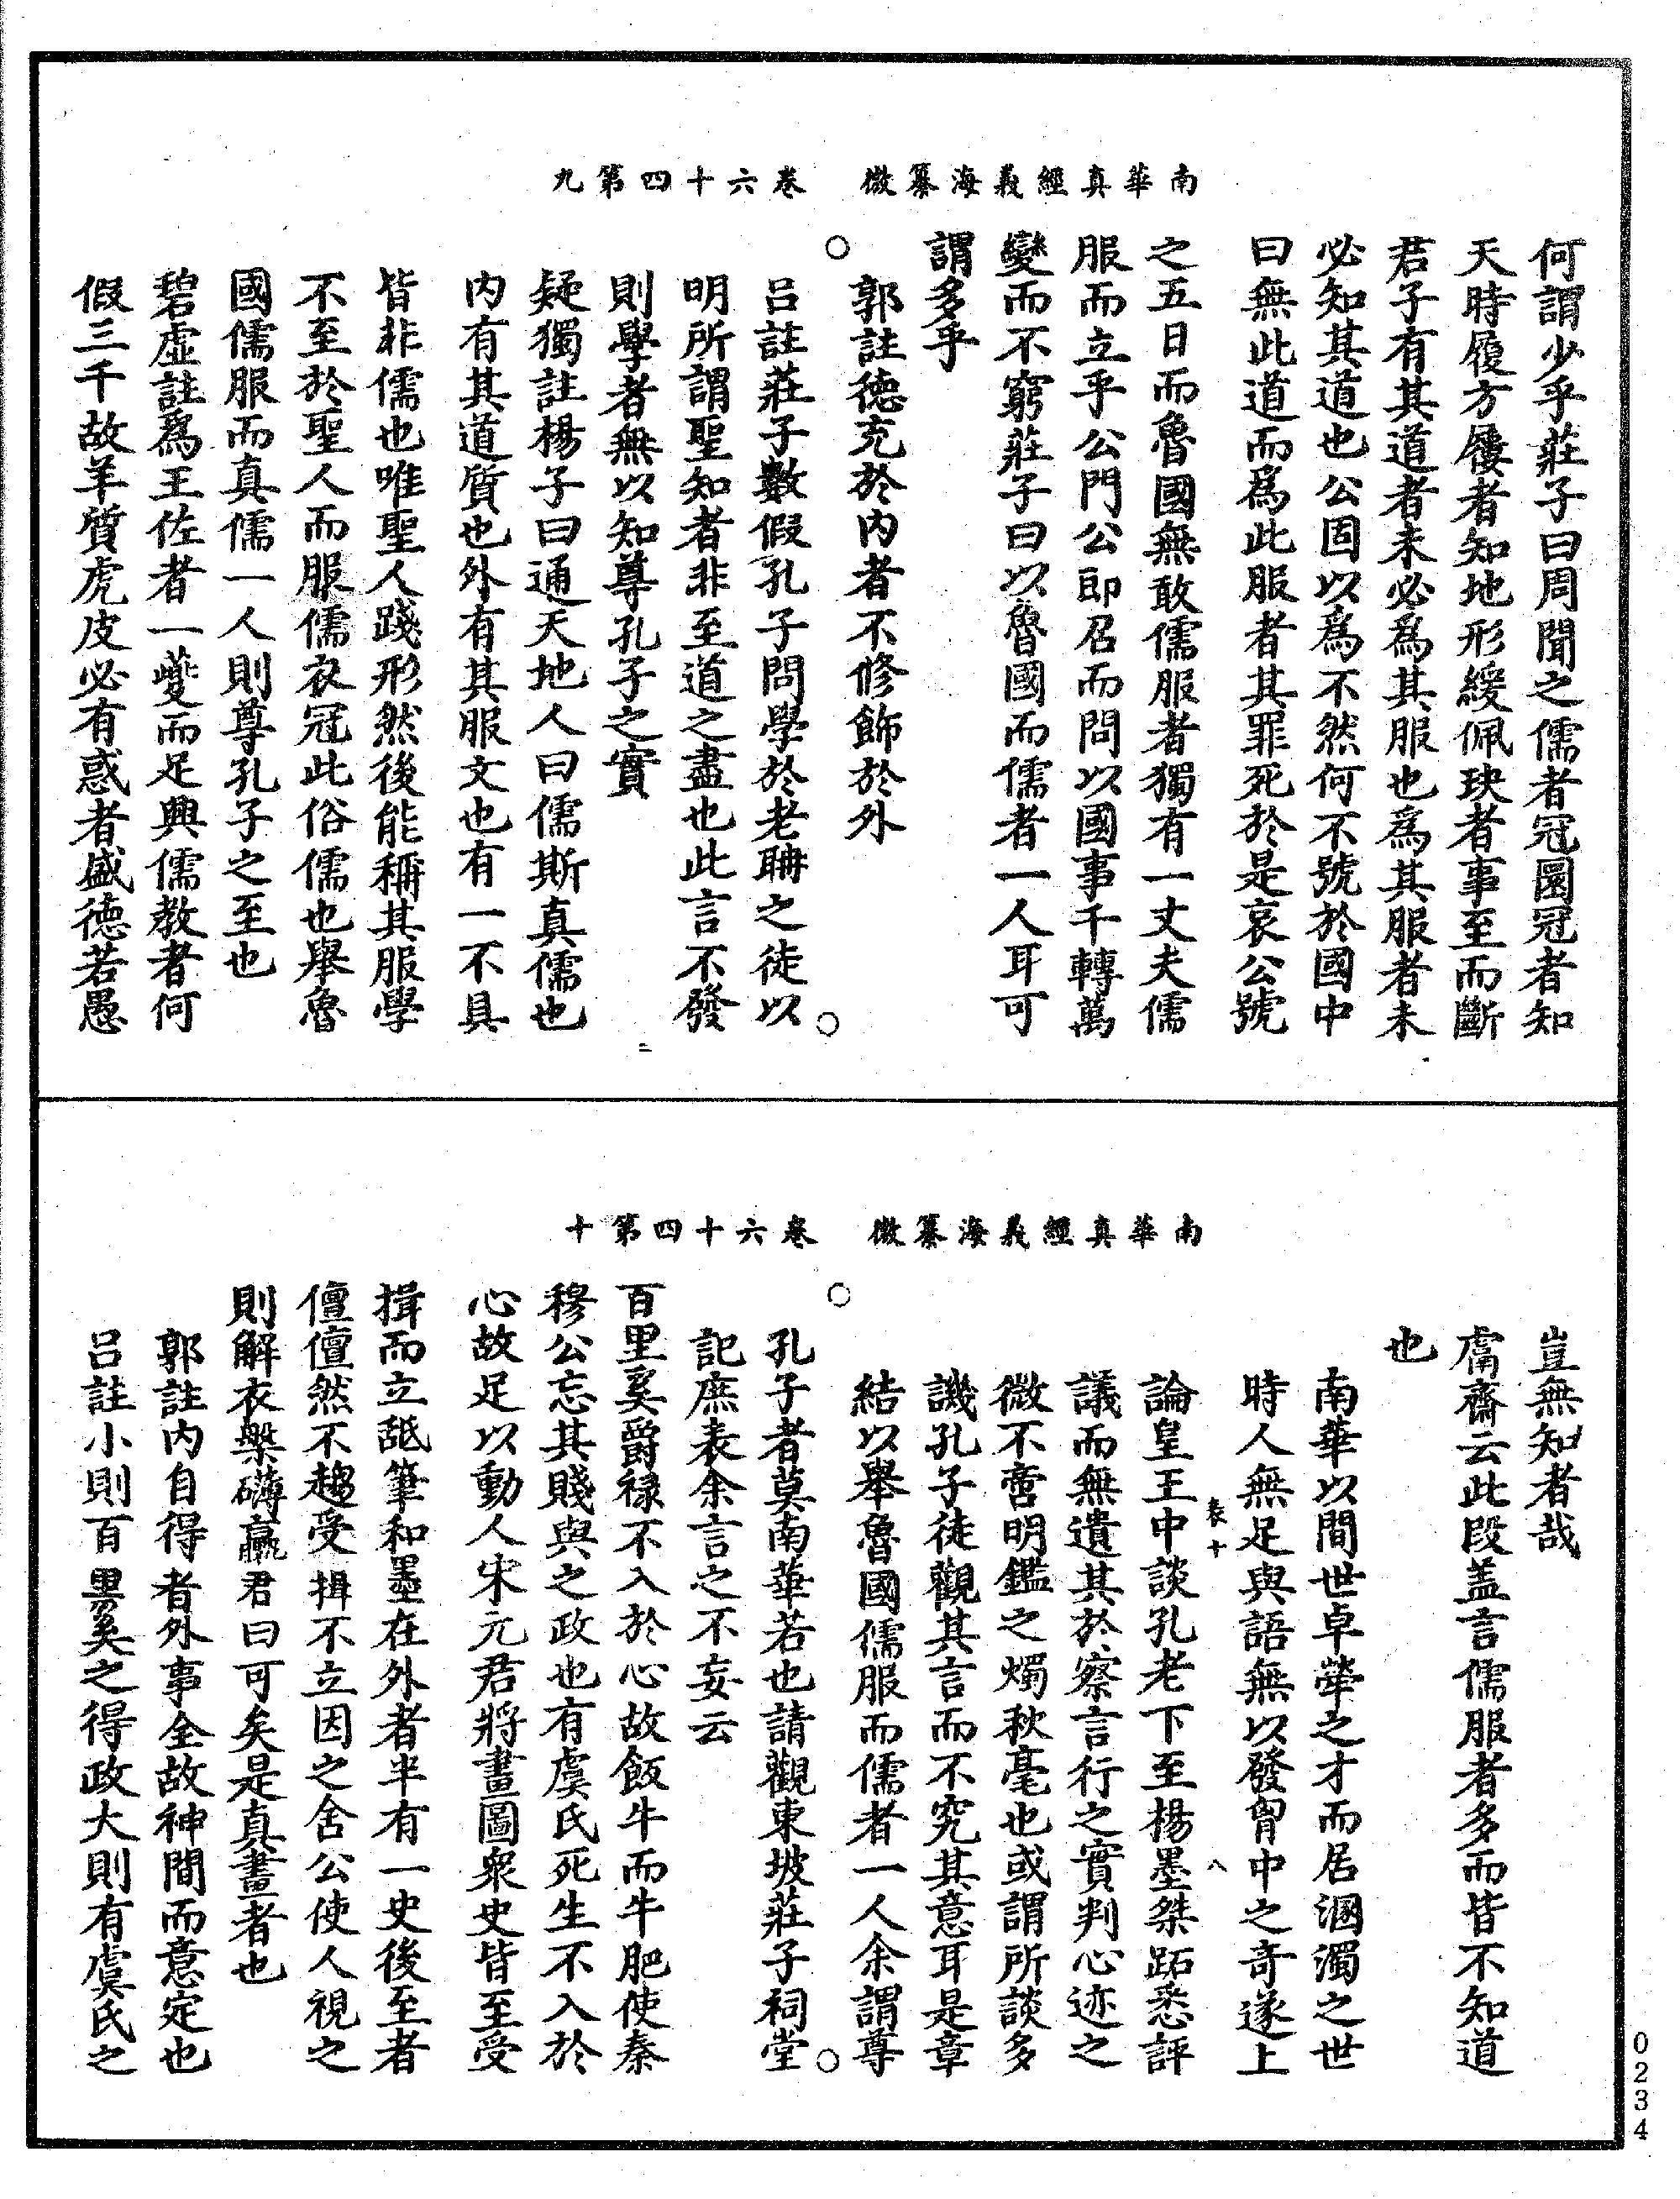 南華真經義海纂微　卷六十四第九
何謂少乎莊子曰周聞之儒者冠圜冠者知
天時履方屨者知地形緩佩玦者事至而斷
君子有其道者未必為其服也為其服者未
必知其道也公固以為不然何不號於國中
曰無此道而為此服者其罪死於是哀公號
之五日而魯國無敢儒服者獨有一丈夫儒
服而立乎公門公即召而問以國事千轉萬
變而不窮莊子曰以魯國而儒者一人耳可
謂多乎
郭註德充於內者不修飾於外
呂註莊子數假孔子問學於老聃之徒以
明所謂聖知者非至道之盡也此言不發
則學者無以知尊孔子之實
疑獨註楊子曰通天地人曰儒斯真儒也
內有其道質也外有其服文也有一不具
皆非儒也唯聖人踐形然後能稱其服學
不至於聖人而服儒衣冠此俗儒也舉魯
國儒服而真儒一人則尊孔子之至也
碧虛註為王佐者一夔而足興儒教者何
假三千故羊質虎皮必有惑者盛德若愚
南華真經義海纂微　卷六十四第十
豈無知者哉
鬳齋云此段盖言儒服者多而皆不知道
也
南華以間世卓犖之才而居溷濁之世
時人無足與語無以發胷中之奇遂上
表十　八
論皇王中談孔老下至楊墨桀跖悉評
議而無遺其於察言行之實判心迹之
微不啻明鑑之燭秋毫也或謂所談多
譏孔子徒觀其言而不究其意耳是章
結以舉魯國儒服而儒者一人余謂尊
孔子者莫南華若也請觀東坡莊子祠堂
記庶表余言之不妄云
百里奚爵祿不入於心故飯牛而牛肥使秦
穆公忘其賤與之政也有虞氏死生不入於
心故足以動人宋元君將畫圖衆史皆至受
揖而立舐筆和墨在外者半有一史後至者
儃儃然不趨受揖不立因之舍公使人視之
則解衣槃礴臝君曰可矣是真畫者也
郭註內自得者外事全故神間而意定也
呂註小則百里奚之得政大則有虞氏之
0234